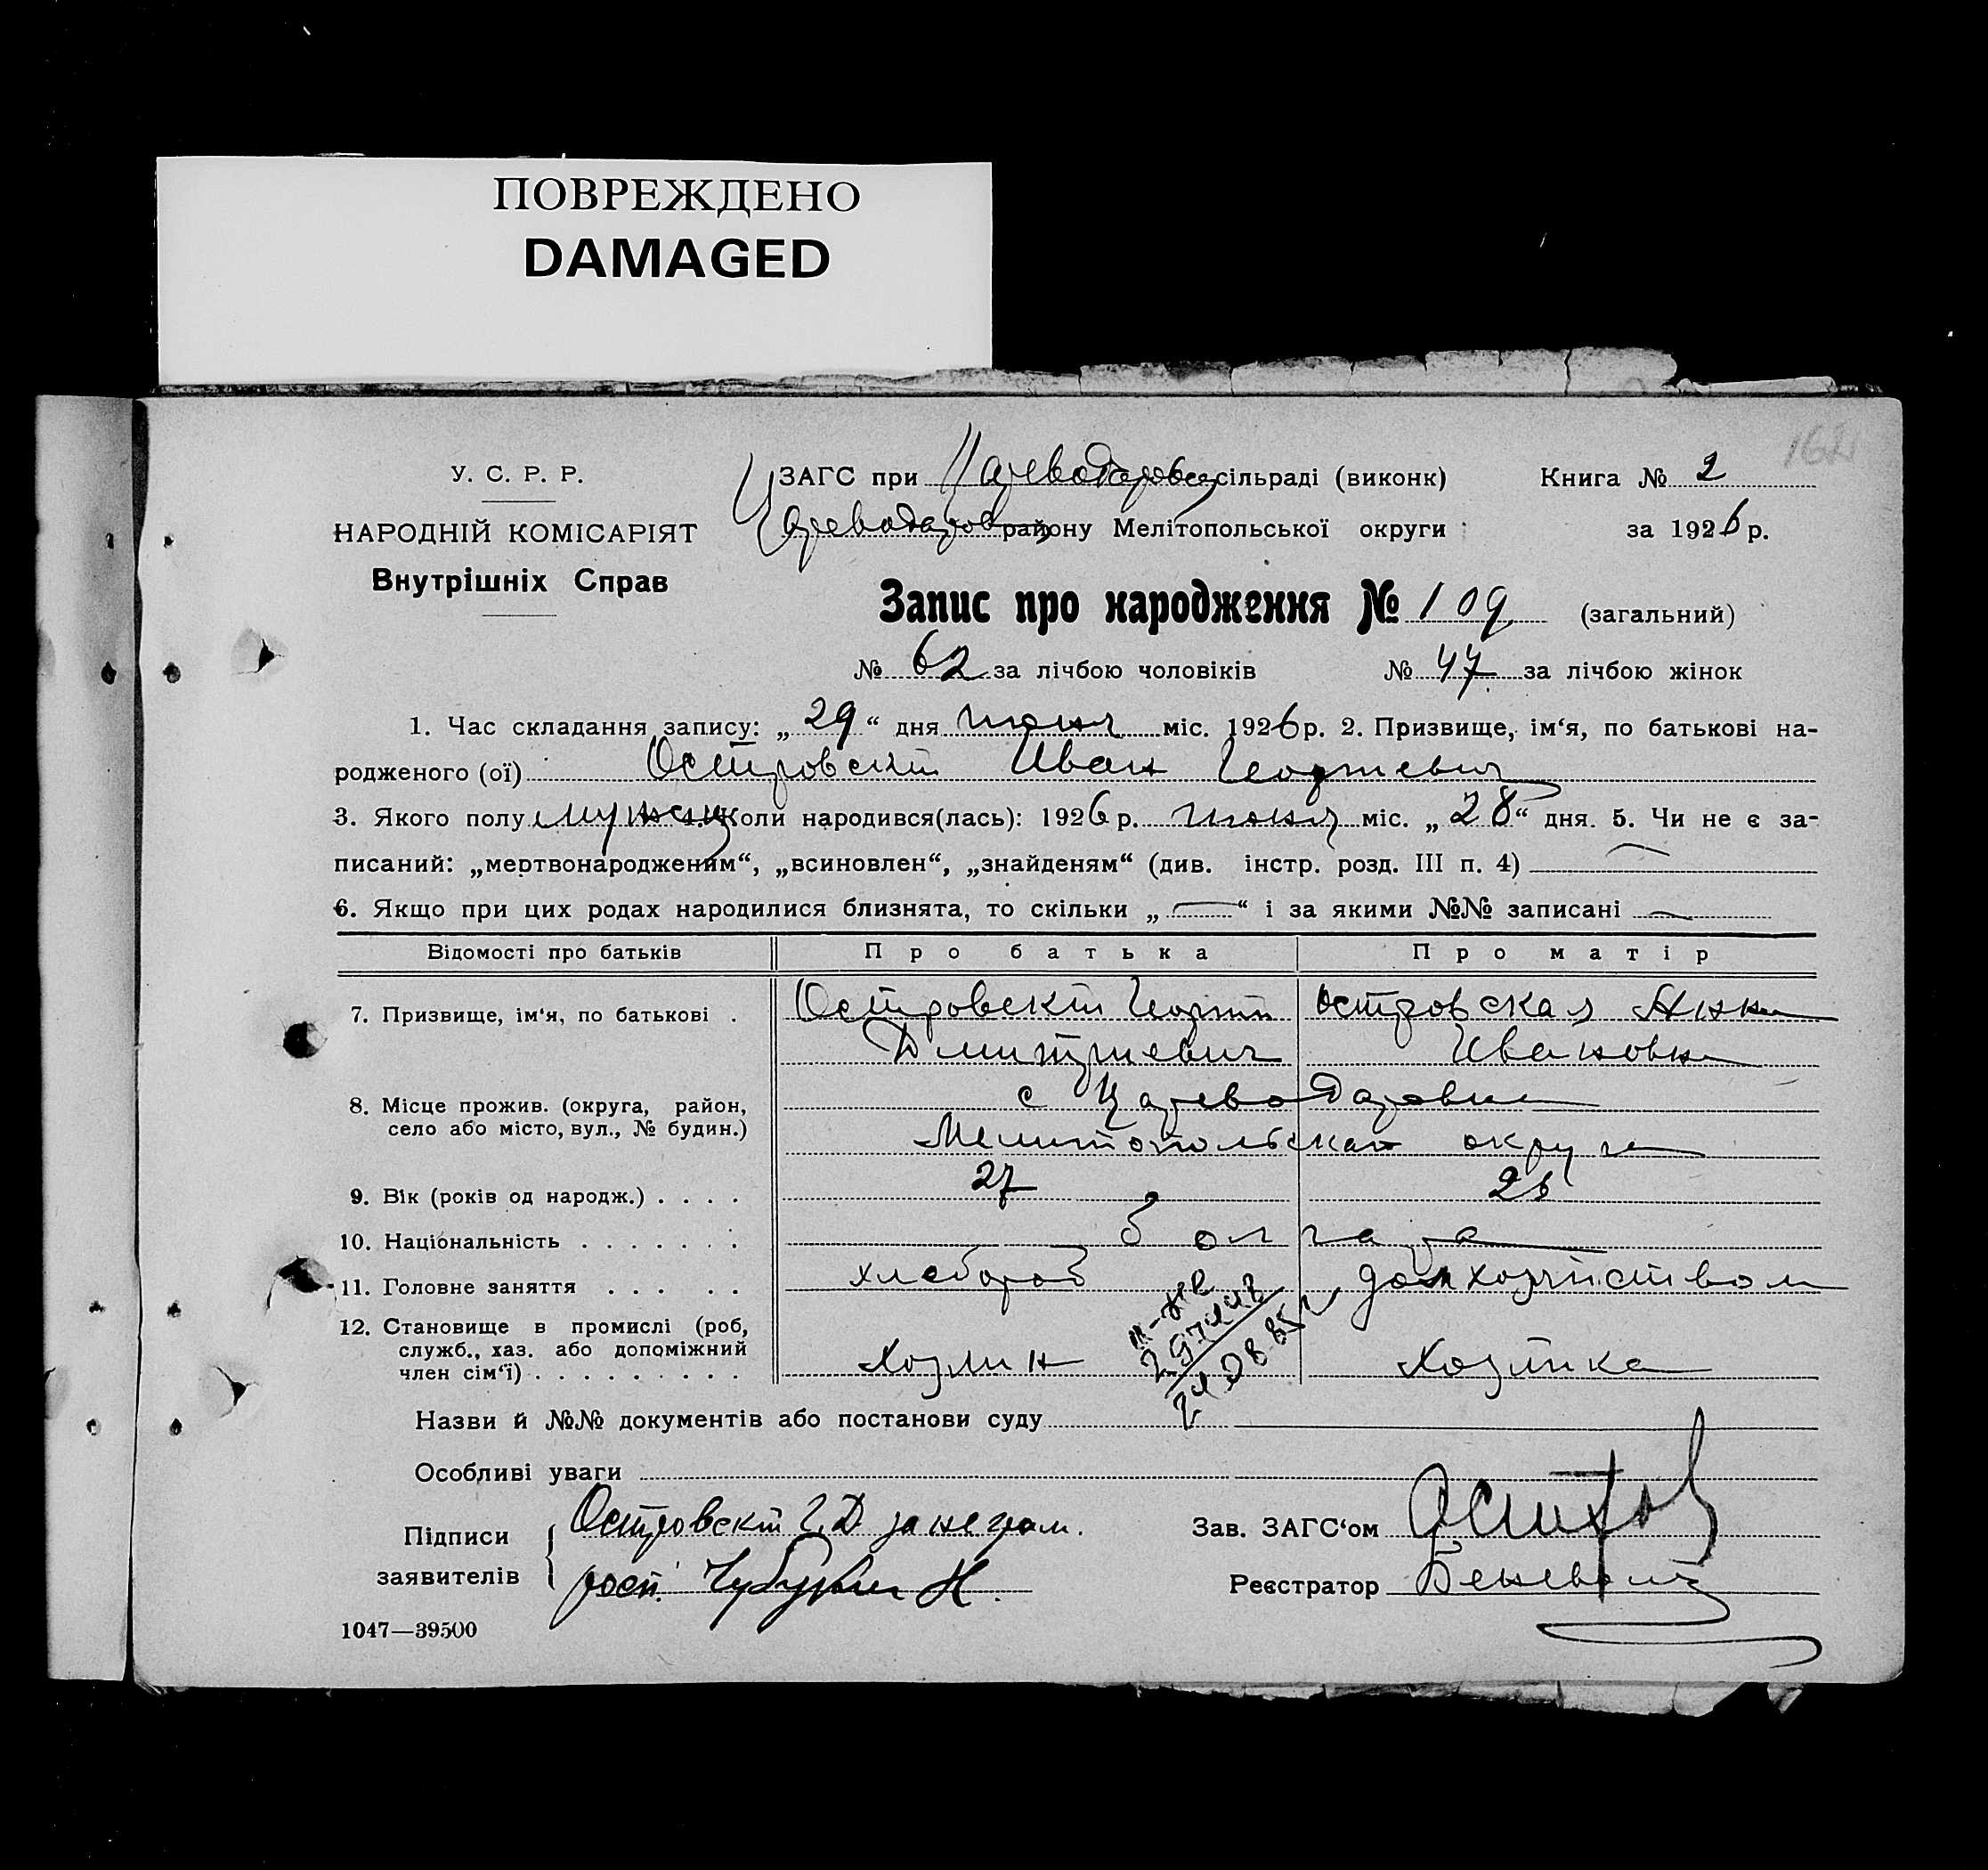 162
ПОВРЕЖДЕНО
DAMAGED
У. С. Р. Р.
НАРОДНІЙ КОМІСАРІЯТ
Внутрішніх Справ
ЗАГС при Царевода­ровск сільраді (виконк) Книга № 2
Цареводаров району Мелітопольської округи за 1926 р.
Запис про народження № 109 (загальний)
№ 62 за лічбою чоловіків № 47 за лічбою жінок
1. Час складання запису: „29“ дня июня міс. 1926 р. 2. Призвище, ім‘я, по батькові на-
родженого (ої) Островский Иван Георгиевич
3. Якого полу мужск 4. Коли народився(лась): 1926 р. июня міс. „28“ дня. 5. Чи не є за-
писаний: „мертвонародженим“, „всиновлен“, „знайденям“ (див. інстр. розд. III п. 4)
6. Якщо при цих родах народилися близнята, то скільки „—“ і за якими №№ записані —
Відомості про батьків Про батька Про матір
7. Призвище, ім‘я, по батькові . Островский Георгий Островская Анна
Дмитриевич Ивановна
8. Місце прожив. (округа, район, с Цареводаровка
село або місто, вул., № будин.) Мелитопольская округа
9. Вік (років од народж.) . . . . 27 28
10. Національність . . . . . . . болгаре
11. Головне заняття . . . . . хлебороб домхозяйством
12. Становище в промислі (роб,
служб., хаз. або допоміжний Хозяин Хозяйка
член сім‘ї) . . . . . . . . .
Назви й №№ документів або постанови суду
Особливі уваги
Підписи Островский Г.Д. за неграм. Зав. ЗАГС‘ом
заявителів росп. Реєстратор
1047—39500